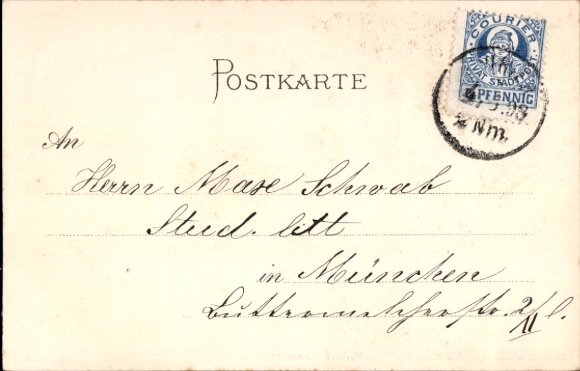 COURIER
PRIVAT STADTPOST
PFENNIG
98
Nm.
POSTKARTE
An
Herrn Max Schwab
Stud. litt
in München
Buttermelcherstr. 2/l.
II